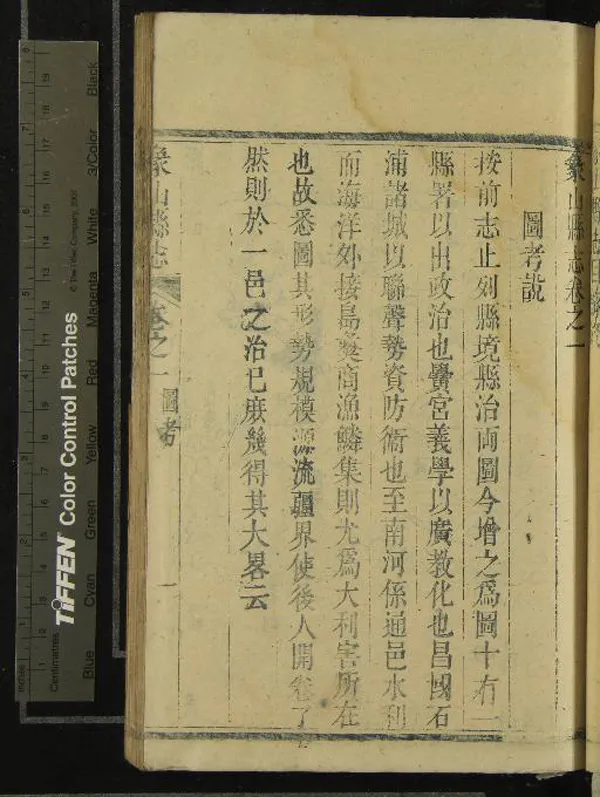 象山縣志卷之一
圖考說
按前志止列縣境縣治兩圖今增之爲圖十有一
縣署以出政治也黌宮義學以廣教化也昌國石
浦諸城以聯聲勢資防衞也至南河係通邑水利
而海洋外接島嶴商漁鱗集則尤爲大利害所在
也故悉圖其形勢規模源流疆界使後人開卷了
然則於一邑之治已庶幾得其大畧云
象山縣志
卷之一
圖考
一
Inches
Centimetres
TIFFEN Color Control Patches
© The Tiffen Company, 2007
Blue
Cyan
Green
Yellow
Red
Magenta
White
3/Color
Black